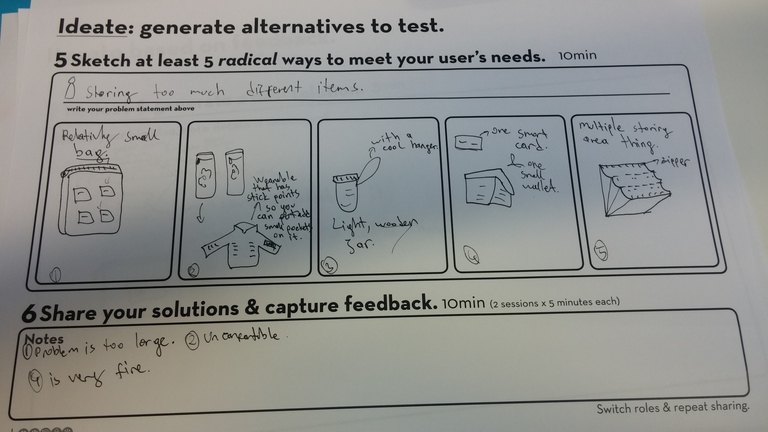 Ideate: generate alternatives to test.
5 Sketch at least 5 radical ways to meet your user's needs. 10min
Storing too much different items.
write your problem statement above
Relativly small
bag.
1
Wearable
that has
stick points
so you
can
small pockets
on it.
2
with a
cool hanger.
Light, wooden
Jar.
3
one smart
card.
& one
small
wallet.
4
Multiple storing
area thing.
zipper
5
6 Share your solutions & capture feedback. 10min (2 sessions x 5 minutes each)
Notes
1 Problem is too large. 2 Uncomfortible.
4 is very fine.
Switch roles & repeat sharing.